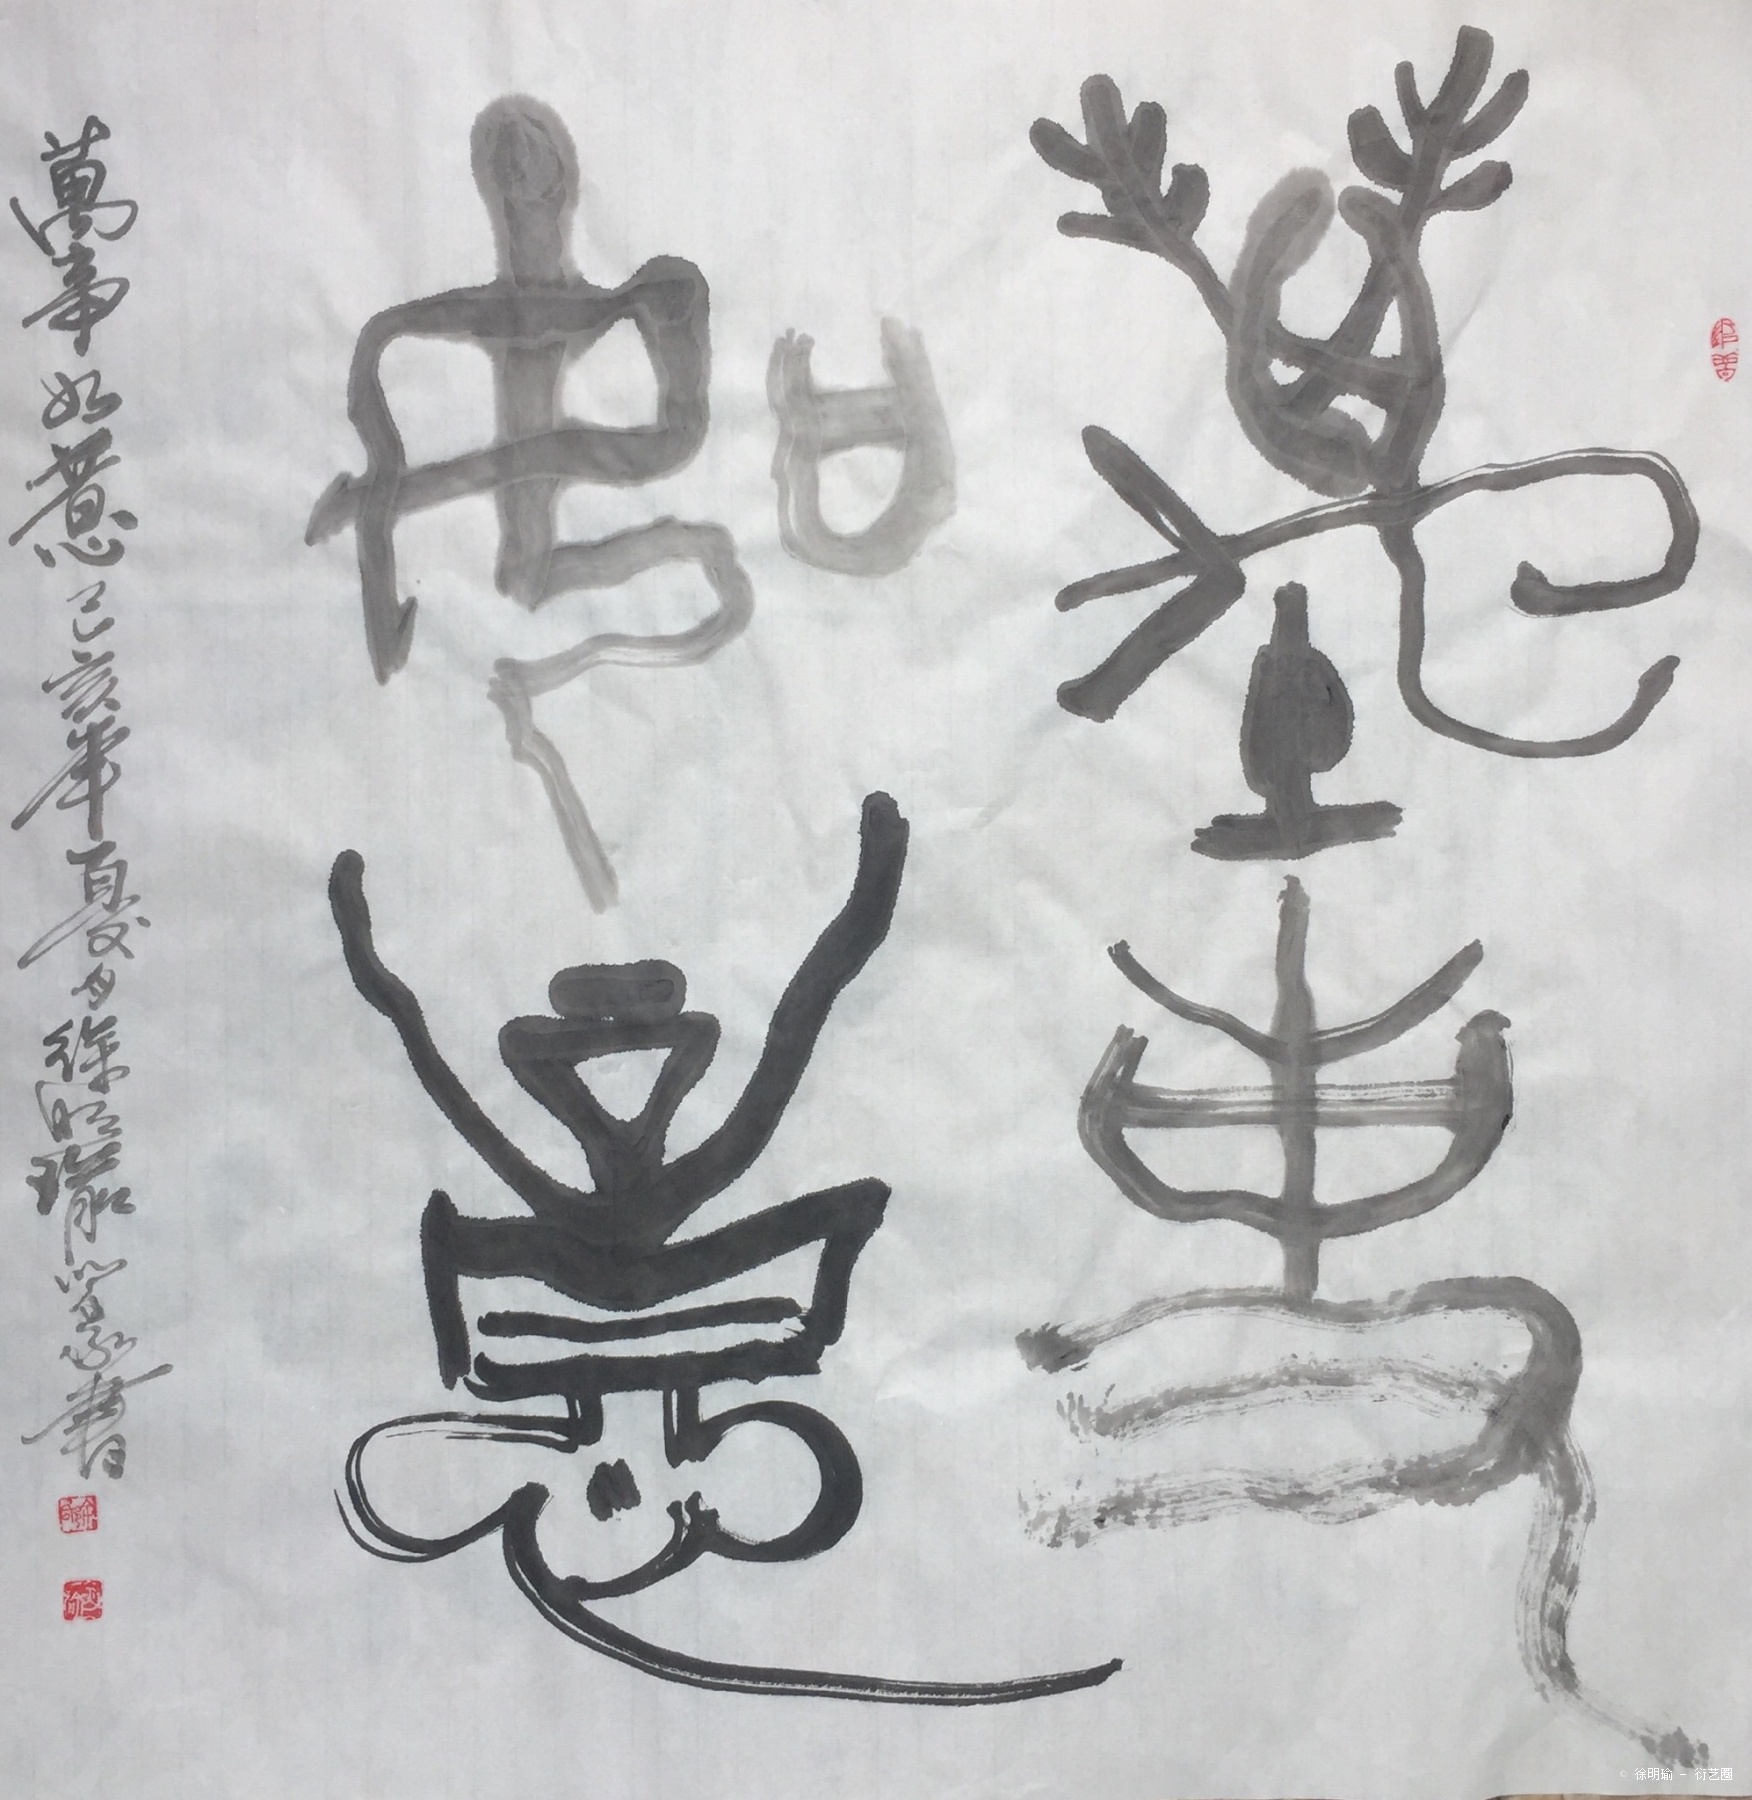 萬事
如意
萬事如意 己亥年夏月 徐明瑜 篆書
© 徐明瑜 - 衍艺圈